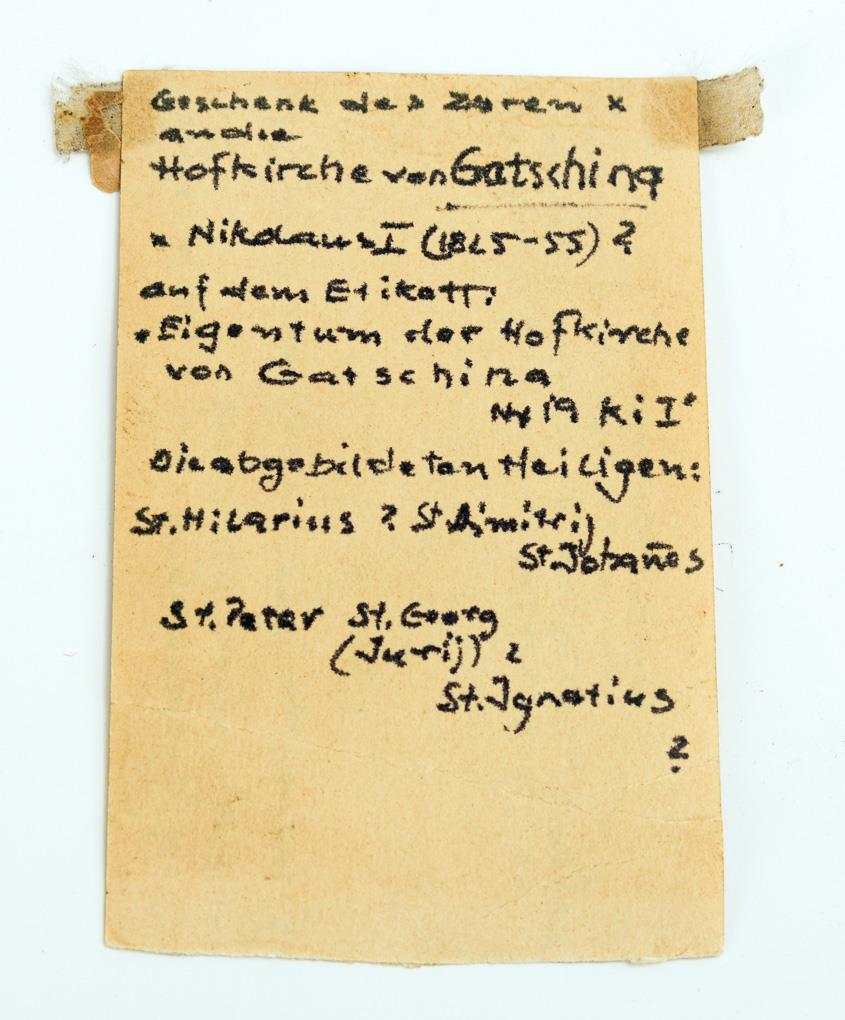 Geschenk des Zaren x
an die
Hofkirche von Gatschina
x Nikolaus I (1825-55) ?
auf dem Etikett:
"Eigentum der Hofkirche
von Gatschina
19 Ki I"
Die abgebildeten Heiligen:
St. Hilarius ? St. Dimitrij
St. Johannes
St. Peter St. Georg
(Jurij) ?
St. Ignatius
?